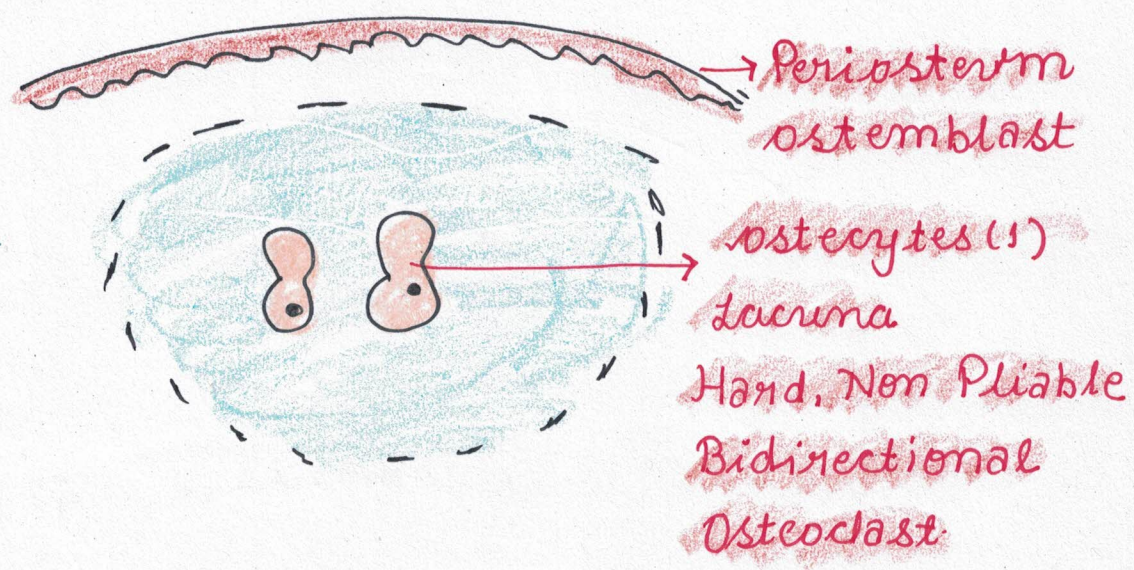 Periosteum
ostemblast
ostecytes (1)
Lacuna
Hard, Non Pliable
Bidirectional
Osteoclast